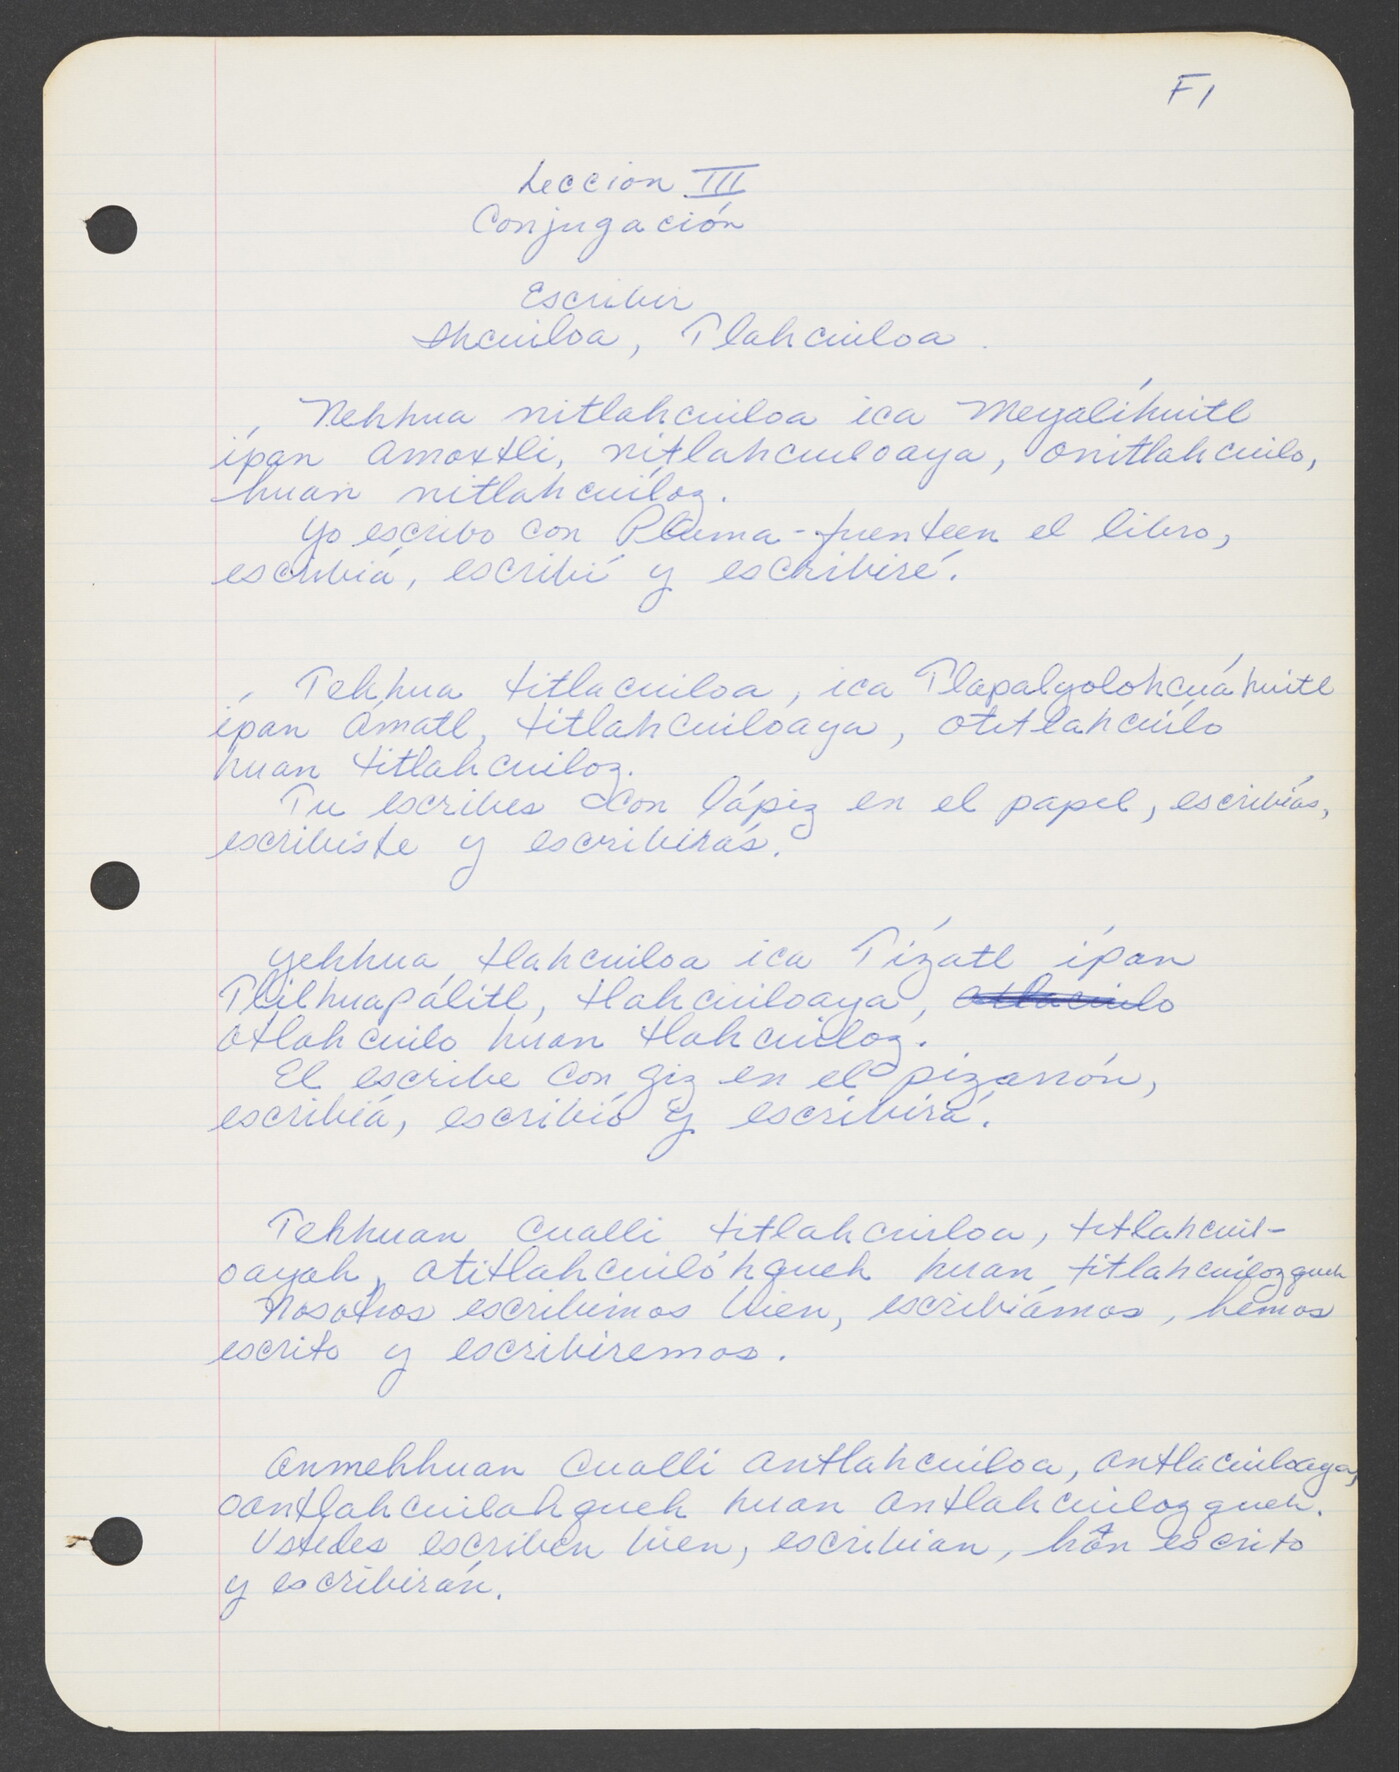 F1
Lección III
Conjugación
Escribir
Ihcuiloa, Tlahcuiloa.
Nehhua nitlahcuiloa ica Meyalíhuitl
ípan amoxtli, nitlahcuiloaya, onitlahcuilo,
huan nitlahcuíloz.
Yo escribo con Pluma-fuente en el libro,
escribía, escribí y escribiré.
Tehhua titlacuiloa, ica Tlapalyolohcuáhuitl
ípan ámatl, titlahcuiloaya, otitlahcuílo
huan titlahcuiloz.
Tu escribes con lápiz en el papel, escribías,
escribiste y escribirás.
Yehhua tlahcuiloa ica Tízatl ípan
Tlilhuapálitl, tlahcuiloaya, otlacuilo
otlahcuilo huan tlahcuiloz.
El escribe con giz en el pizarrón,
escribiá, escribió y escribirá.
Tehhuan cualli titlahcuiloa, titlahcuil-
oayah, otitlahcuilóhqueh huan titlahcuilozqueh
Nosotros escribimos bien, escribiámos, hémos
escrito y escribiremos.
Anmehhuan cualli antlahcuiloa, antlacuiloaya,
oantlahcuilohqueh huan antlahcuilozqueh.
Ustedes escriben bien, escribian, hán escrito
y escribirán.